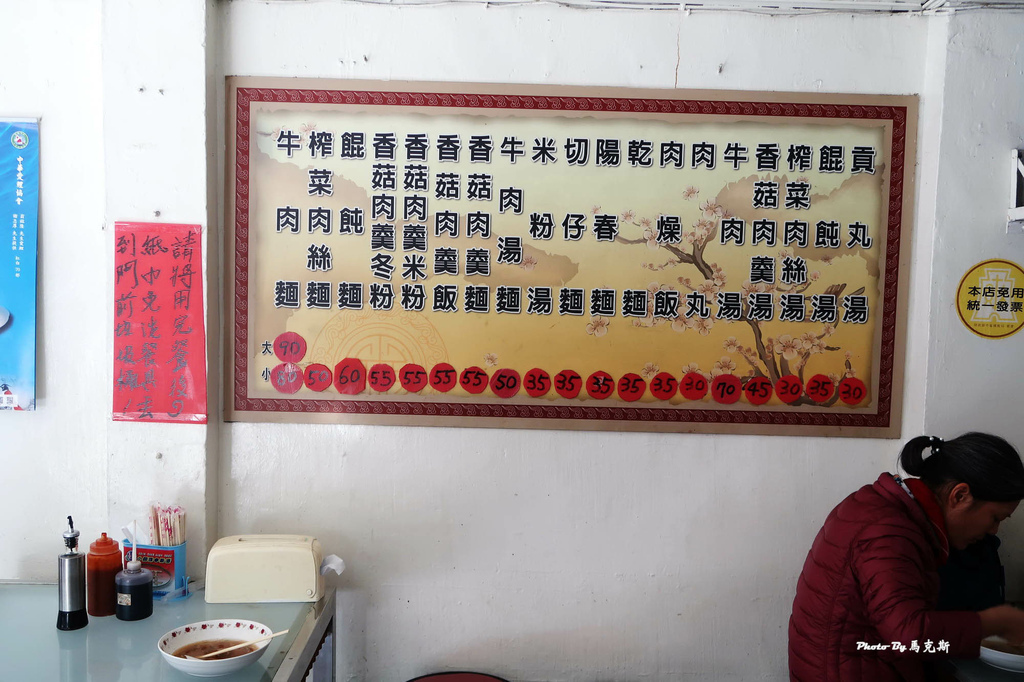 請將用完餐後的
紙巾免洗餐具丟
到門前垃圾桶！
牛肉麵
榨菜肉絲麵
餛飩麵
香菇肉羹冬粉
香菇肉羹米粉
香菇肉羹飯
香菇肉羹麵
牛肉湯麵
米粉湯
切仔麵
陽春麵
乾麵
肉燥飯
肉丸
牛肉湯
香菇肉羹湯
榨菜肉絲湯
餛飩湯
貢丸湯
大 90
小 80 50 60 55 55 55 55 50 35 35 35 35 35 30 70 45 30 35 30
本店免用
統一發票
Photo By 馬克斯